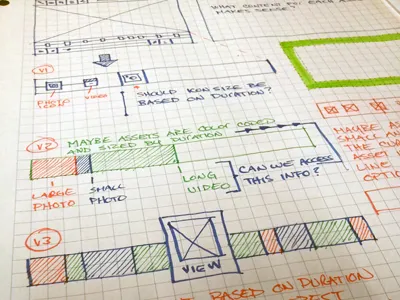 WHAT CONTENT FOR EACH A
MAKES SENSE?
V1
PHOTO
VIDEO
* SHOULD ICON SIZE BE
BASED ON DURATION?
V2
MAYBE ASSETS ARE COLOR CODED
AND SIZED BY DURATION
LARGE
PHOTO
SMALL
PHOTO
LONG
VIDEO
CAN WE ACCESS
THIS INFO?
MAYBE AS
SMALL AN
THE CUR
ASSET
LINE
OPTIO
V3
VIEW
BASED ON DURATION